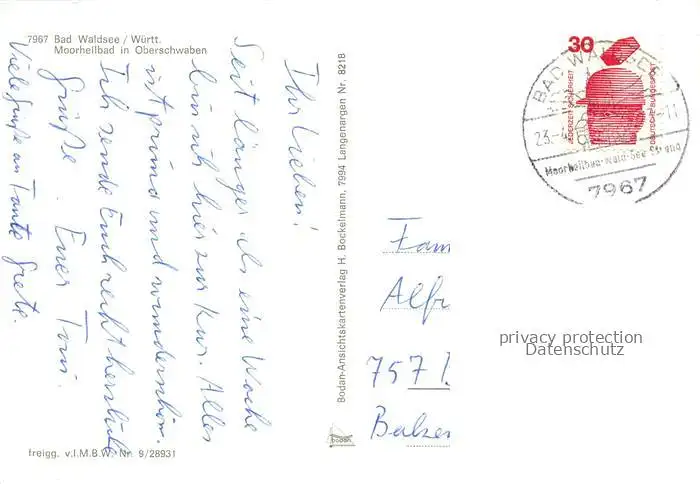 7967 Bad Waldsee / Württ.
Moorheilbad in Oberschwaben
Ihr Lieben!
Seit länger als eine Woche
bin ich hier zur Kur. Alles
ist prima und wunderschön.
Ich sende Euch recht herzliche
Grüße. Euer Toni.
Viele Grüße an Tante Grete.
freigg. v.I.M.B.W. Nr. 9/28931
Bodan-Ansichtskartenverlag H. Bockelmann, 7994 Langenargen Nr. 8218
bodan
30
JEDERZEIT SICHERHEIT
DEUTSCHE BUNDESPOST
BAD WALDSEE
23.
-11
Moorheilbad-Wald-See-Strand
7967
Fam
Alfr
757
privacy protection
Datenschutz